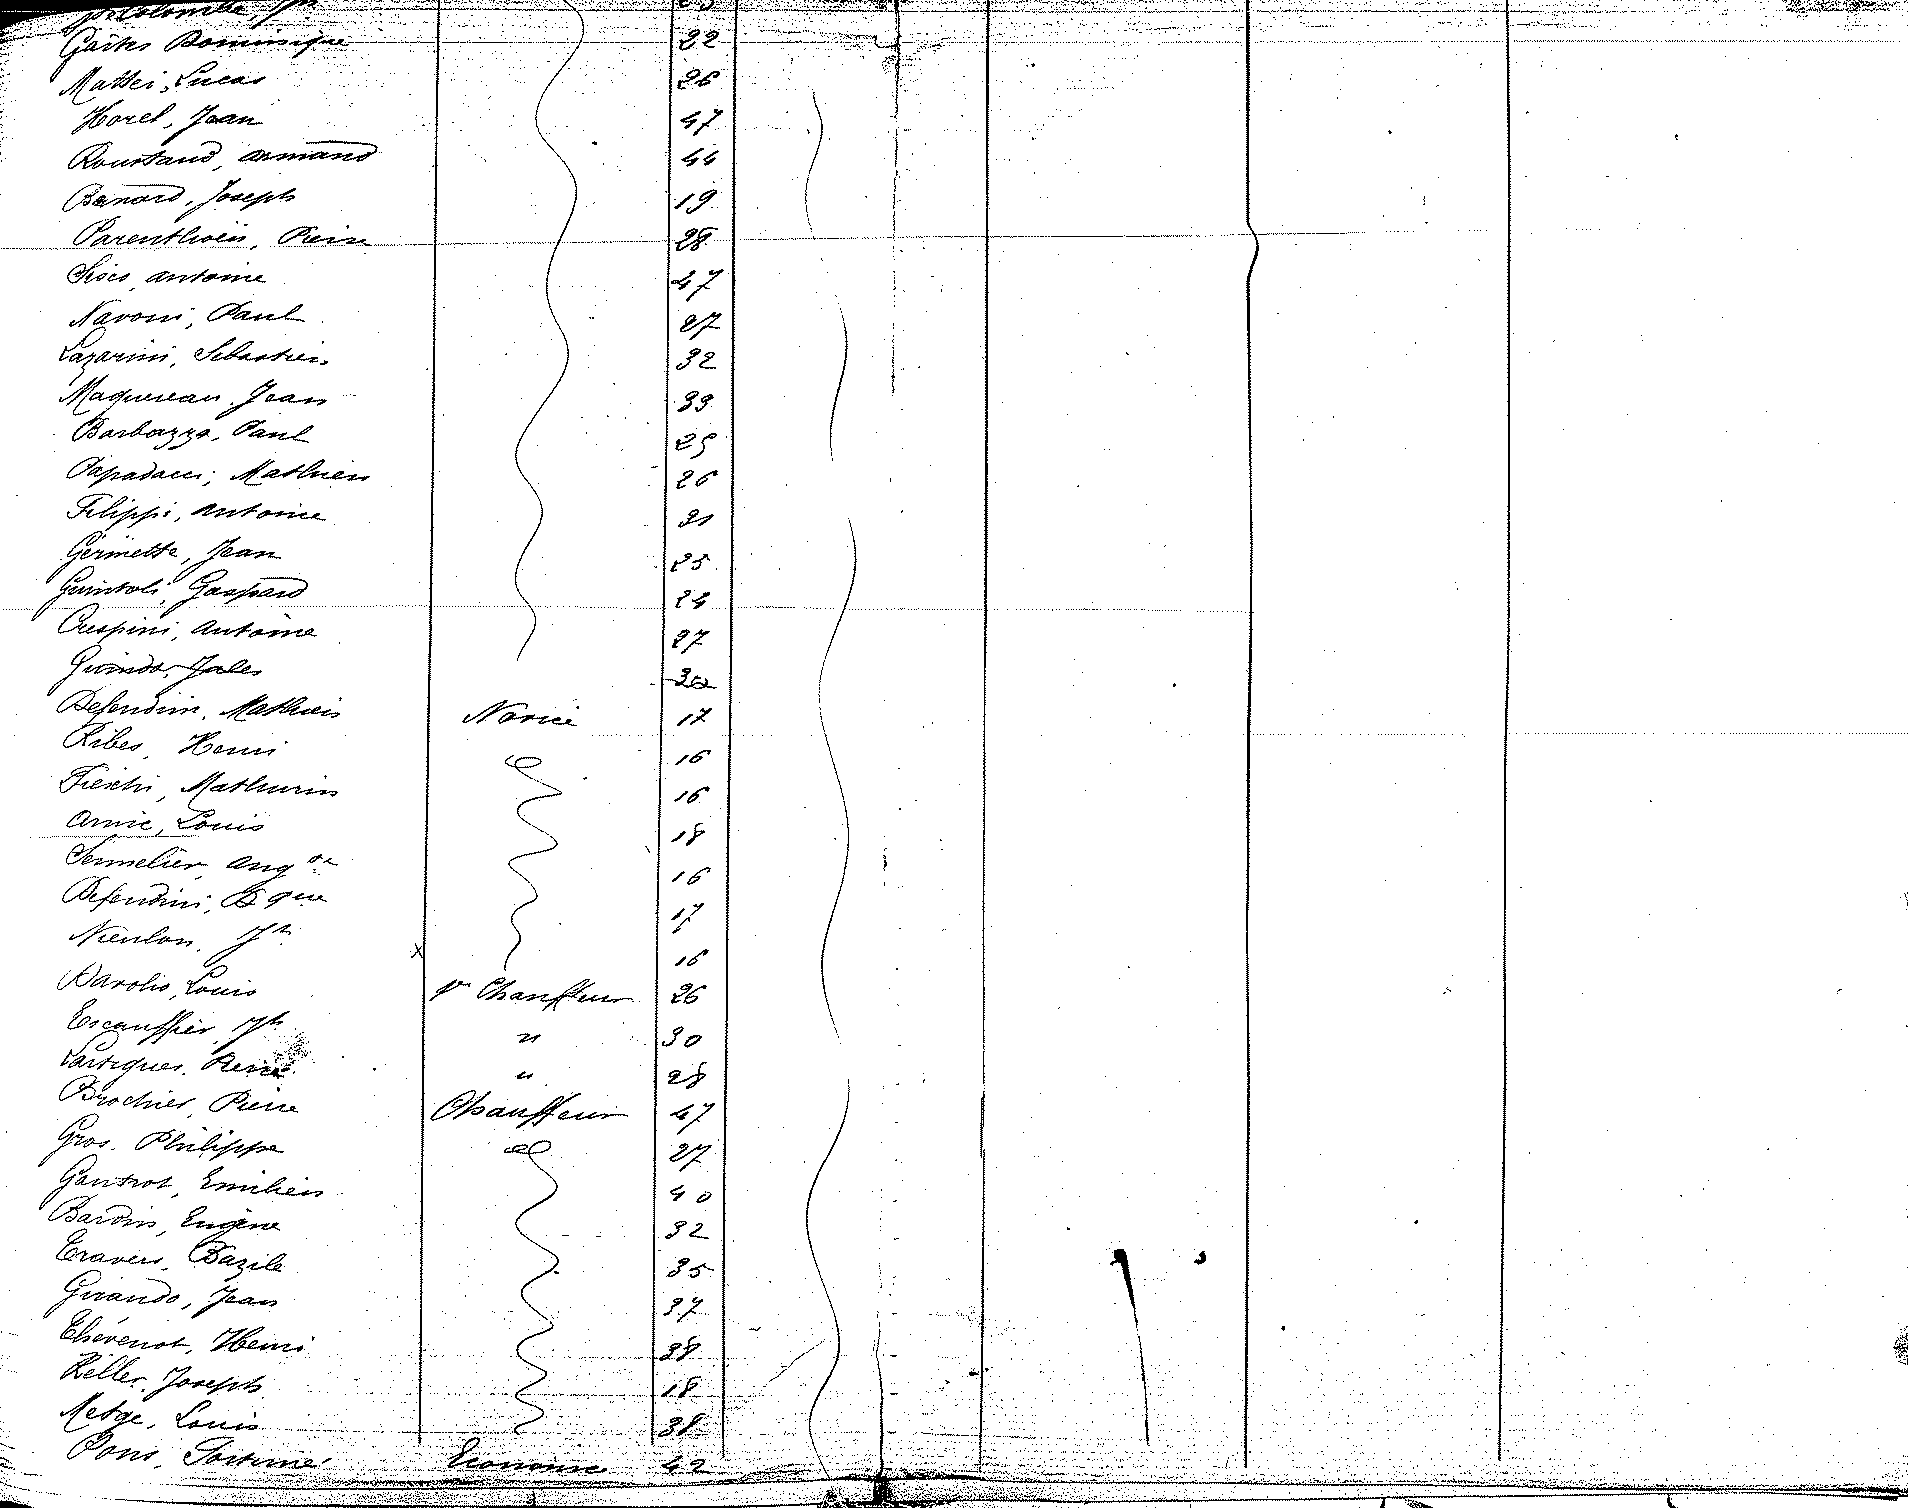 Delcolombe, Jh 23
Gaiks Dominique 22
Mattei, Lucas 26
Horel, Jean 47
Roustand, Armand 44
Bénard, Joseph 19
Parenthoën, Pierre 28
Sisco, Antoine 47
Navoni, Paul 27
Lazarini, Sébastien 32
Maquereau, Jean 39
Barbazza, Paul 25
Papadacci, Mathieu 26
Filippi, Antoine 31
Germette, Jean 25
Guintoli, Gaspard 24
Crespini, Antoine 27
Guindo, Jules 30
Defendini, Mathieu Novice 17
Ribes, Henri 16
Fieschi, Mathurin 16
Amic, Louis 18
Semelier, Aug 16
Defendini, Dque 17
Nieulon, Jh x 16
Davolio, Louis 1er Chauffeur 26
Escauffier, Jh " 30
Lartigues, Pierre " 28
Brochier, Pierre Chauffeur 47
Gros, Philippe 27
Gautrot, Emilien 40
Bardin, Eugène 32
Travers, Bazile 35
Girando, Jean 37
Thévenot, Henri 38
Keller, Joseph 18
Metge, Louis 38
Pons, Fortuné Econome 42